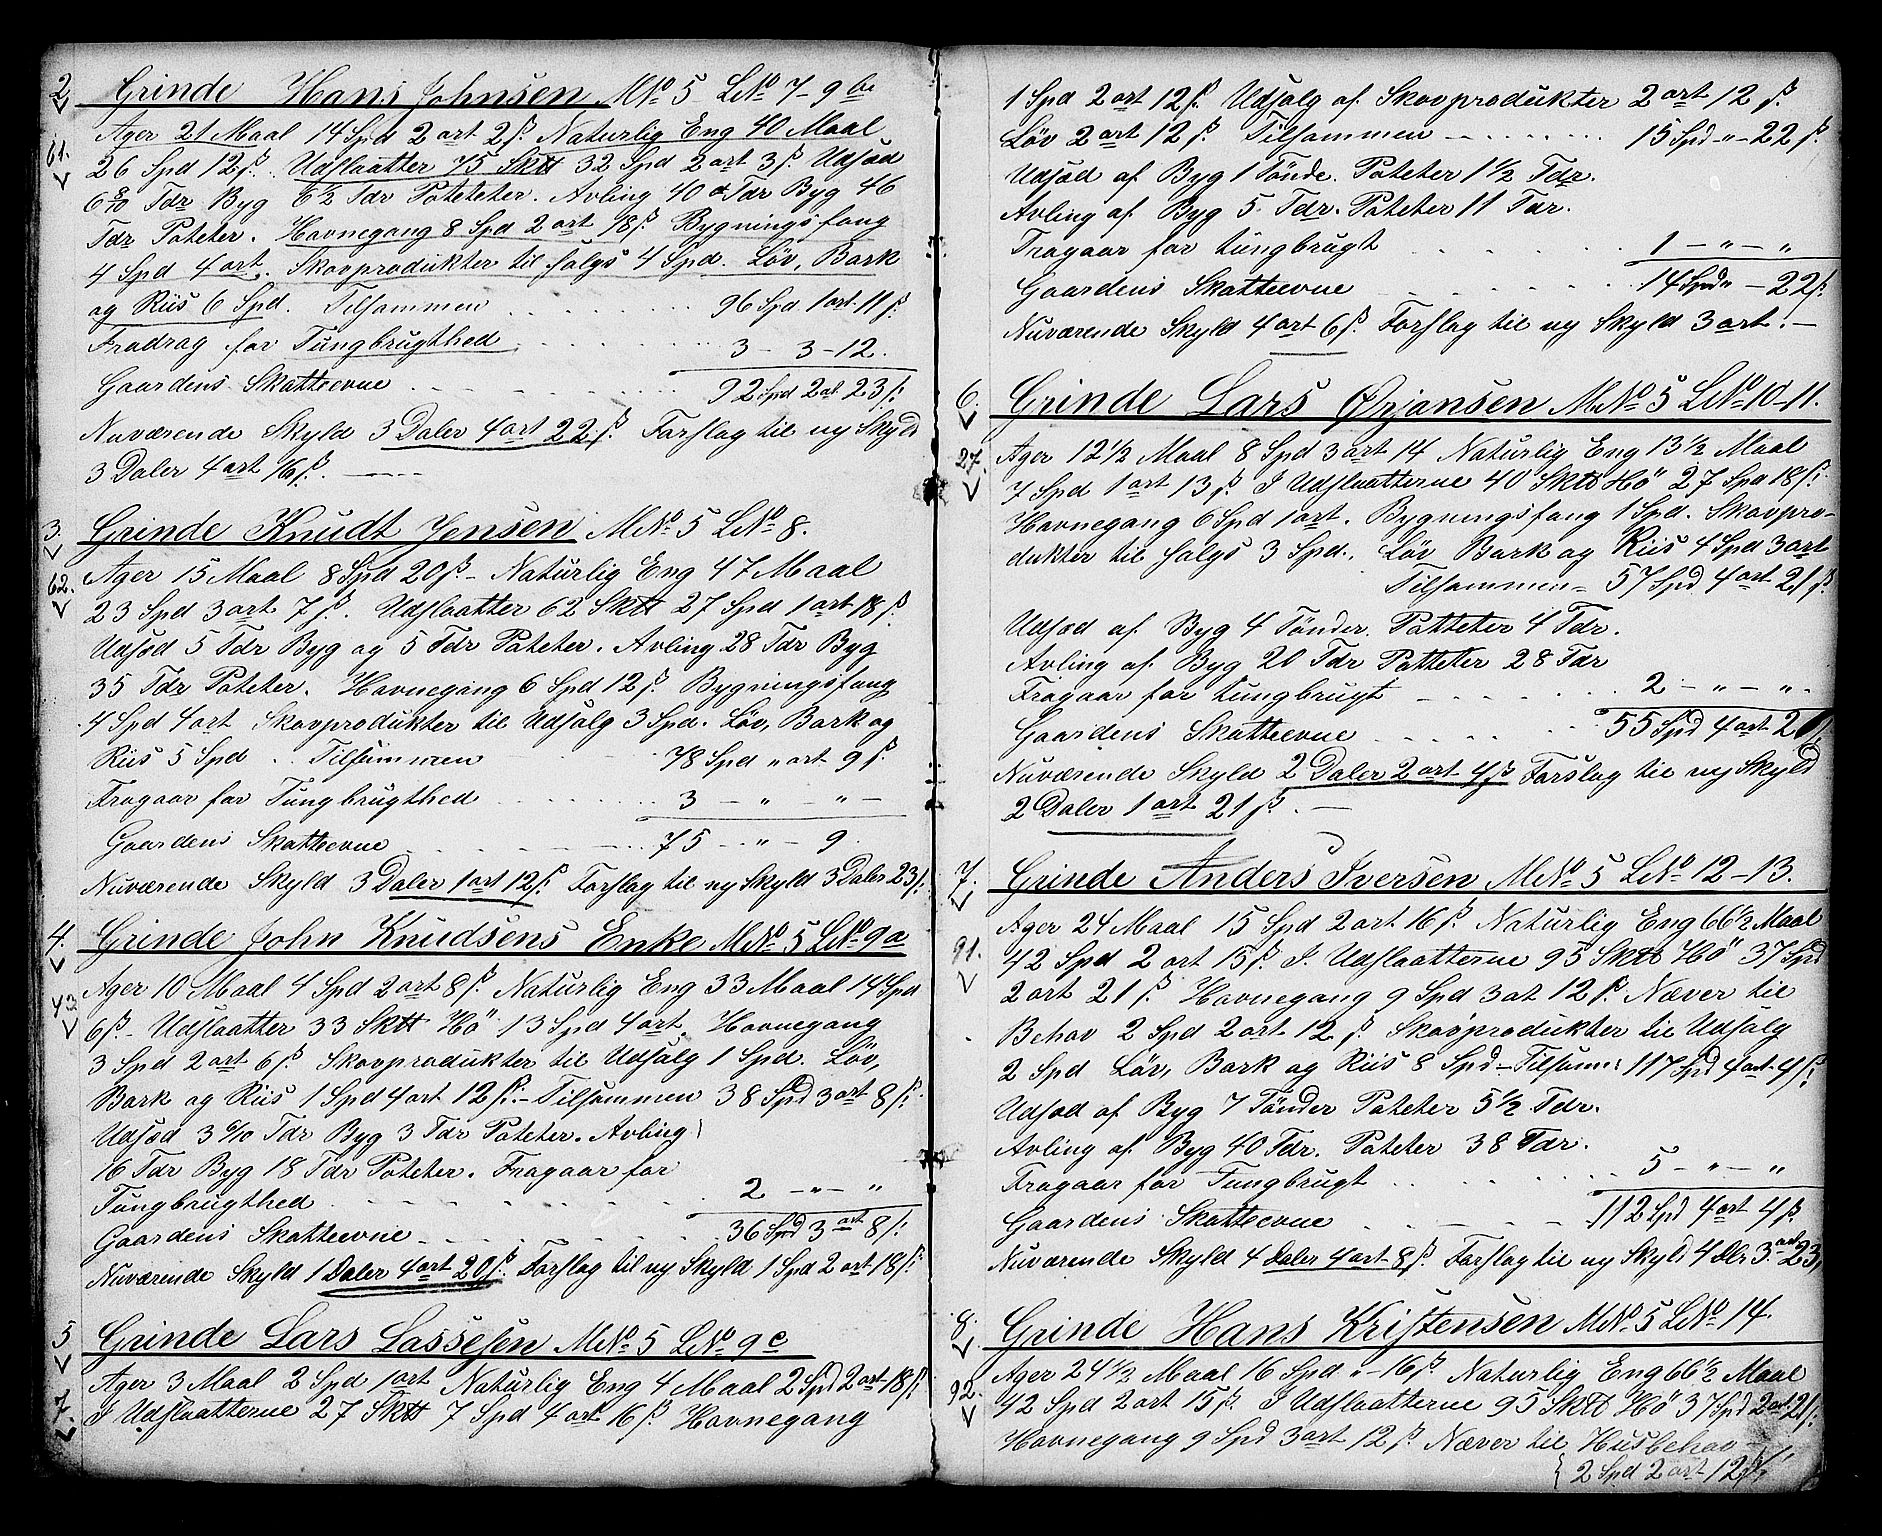 2 Grinde Hans Johnsen MNo 5 LNo 7-9 bc
Ager 21 Maal 14 Spd 2 ort 2 ß. Naturlig Eng 40 Maal
61. 26 Spd 12 ß. Udslaatter 75 Sktt 32 Spd 2 ort 3 ß Udsæd
6 8/10 Tdr Byg 6 1/2 Tdr Poteteter. Avling 40 Tdr Byg 46
Tdr Poteter. Havnegang 8 Spd 2 ort 18 ß Bygningsfang
4 Spd 4 ort. Skovprodukter til salgs 4 Spd. Löv, Bark
og Riis 6 Spd. Tilsammen . . . . . 96 Spd 1 ort 11 ß
Fradrag for Tungbrugthed . . . . . 3 - 3 - 12.
Gaardens Skatteevne . . . . . 92 Spd 2 ort 23 ß
Nuværende Skyld 3 Daler 4 ort 22 ß. Forslag til ny Skyld
3 Daler 4 ort 16 ß. —
3. Grinde Knudt Jensen MNo 5 LNo 8.
62. Ager 15 Maal 8 Spd 20 ß - Naturlig Eng 47 Maal
23 Spd 3 ort 7 ß. Udslaatter 62 Sktt 27 Spd 1 ort 18 ß
Udsæd 5 Tdr Byg og 5 Tdr Poteter. Avling 28 Tdr Byg
35 Tdr Poteter. Havnegang 6 Spd 12 ß. Bygningsfang
4 Spd 4 ort Skovprodukter til Udsalg 3 Spd. Löv, Bark og
Riis 5 Spd . . Tilsammen 78 Spd " ort 9 ß.
Fragaar for Tungbrugthed . . . . . 3 - " - " -
Gaardens Skatteevne . . . . . 75 - " - 9.
Nuværende Skyld 3 Daler 1 ort 12 ß. Forslag til ny Skyld 3 Daler 23 ß.
4. Grinde John Knudsens Enke MNo 5 LNo 9a
43 Ager 10 Maal 4 Spd 2 ort 8 ß. Naturlig Eng 33 Maal 14 Spd
6 ß - Udslaatter 33 Sktt Hö 13 Spd 4 ort. Havnegang
3 Spd 2 ort 6 ß Skovprodukter til Udsalg 1 Spd. Löv,
Bark og Riis 1 Spd 4 ort 12 ß - Tilsammen 38 Spd 3 ort 8 ß.
Udsæd 3 6/10 Tdr Byg 3 Tdr Poteter. Avling
16 Tdr Byg 18 Tdr Poteter. Fragaar for
Tungbrugthed . . . . . 2 - " - "
Gaardens Skatteevne . . . . . 36 Spd 3 ort 8 ß.
Nuværende Skyld 1 Daler 4 ort 20 ß. Forslag til ny Skyld 1 Spd 2 ort 18 ß.
5 Grinde Lars Lassesen MNo 5 LNo 9 c
Ager 3 Maal 2 Spd 1 ort Naturlig Eng 4 Maal 2 Spd 2 ort 18 ß.
7. I Udslaatterne 27 Sktt 7 Spd 4 ort 16 ß Havnegang
1 Spd 2 ort 12 ß. Udsalg af Skovprodukter 2 ort 12 ß.
Löv 2 ort 12 ß Tilsammen - . . . . . 15 Spd - " - 22 ß.
Udsæd af Byg 1 Tönde. Poteter 1 1/2 Tdr.
Avling af Byg 5 Tdr. Poteter 11 Tdr.
Fragaar for tungbrugt . . . . . 1 - " - "
Gaardens Skatteevne . . . . . 14 Spd " - 22 ß.
Nuværende Skyld 4 ort 6 ß. Forslag til ny Skyld 3 ort. —
6. Grinde Lars Ørjansen MNo 5 LNo 10-11.
27. Ager 12 1/2 Maal 8 Spd 3 ort 14 Naturlig Eng 13 1/2 Maal
7 Spd 1 ort 13 ß. I Udslaatterne 40 Sktt Hö 27 Spd 18 ß.
Havnegang 6 Spd 1 ort. Bygningsfang 1 Spd. Skovpro-
dukter til salgs 3 Spd. Löv Bark og Riis 4 Spd 3 ort
Tilsammen = 57 Spd 4 ort 21 ß.
Udsæd af Byg 4 Tönder. Potteter 4 Tdr.
Avling af Byg 20 Tdr Potteter 28 Tdr
Fragaar for tungbrugt - . . . . . 2 - " - " .
Gaardens Skatteevne . . . . . 55 Spd 4 ort 21 ß
Nuværende Skyld 2 Daler 2 ort 4 ß Forslag til ny Skyld
2 Daler 1 ort 21 ß. —
7. Grinde Anders Iversen MNo 5 LNo 12-13.
Ager 24 Maal 15 Spd 2 ort 16 ß. Naturlig Eng 66 1/2 Maal
91. 42 Spd 2 ort 15 ß. I Udslaatterne 95 Sktt Hö 37 Spd
2 ort 21 ß. Havnegang 9 Spd 3 ort 12 ß. Næver til
Behov 2 Spd 2 ort 12 ß Skovprodukter til Udsalg
2 Spd Löv, Bark og Riis 8 Spd - Tilsam: 117 Spd 4 ort 4 ß.
Udsæd af Byg 7 Tönder Poteter 5 1/2 Tdr.
Avling af Byg 40 Tdr. Poteter 38 Tdr.
Fragaar for Tungbrugt . . . . . 5 - " - "
Gaardens Skatteevne . . . . . 112 Spd 4 ort 4 ß.
Nuværende Skyld 4 Daler 4 ort 8 ß. Forslag til ny Skyld 4 Dlr 3 ort 23
8. Grinde Hans Kristensen MNo 5 LNo 14.
Ager 24 1/2 Maal 16 Spd " - 16 ß Naturlig Eng 66 1/2 Maal
92. 42 Spd 2 ort 15 ß. I Udslaatterne 95 Sktt Hö 37 Spd 2 ort 21 ß.
Havnegang 9 Spd 3 ort 12 ß. Næver til Husbehov -
2 Spd 2 ort 12 ß